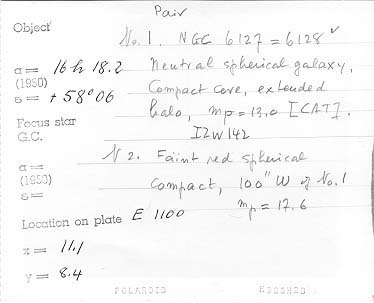 Pair
Object
No. 1. NGC 6127 = 6128
α = 16h 18.2 Neutral spherical galaxy,
(1950) Compact Core, extended
δ = + 58° 06 halo, mp = 13.0 [CAT].
Focus star
G.C. I Zw 142
N 2. Faint red spherical
α =
(1950) Compact, 100" W of No. 1
δ = mp = 17.6
Location on plate E 1100
x = 11.1
y = 8.4
POLAROID